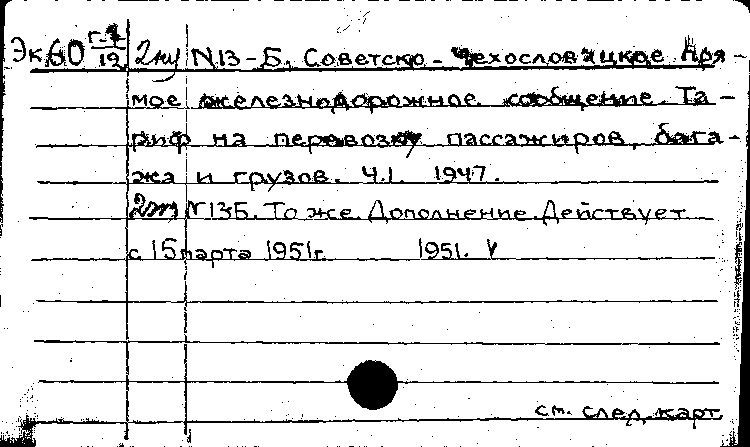 Эк60 Г-7/19 2лу N13-Б. Советско-Чехословацкое пря-
мое железнодорожное сообщение. Та-
риф на перевозку пассажиров, бага-
жа и грузов. Ч.1. 1947.
N13Б. То же. Дополнение. Действует
с 15 марта 1951г. 1951. V
см. след. карт.